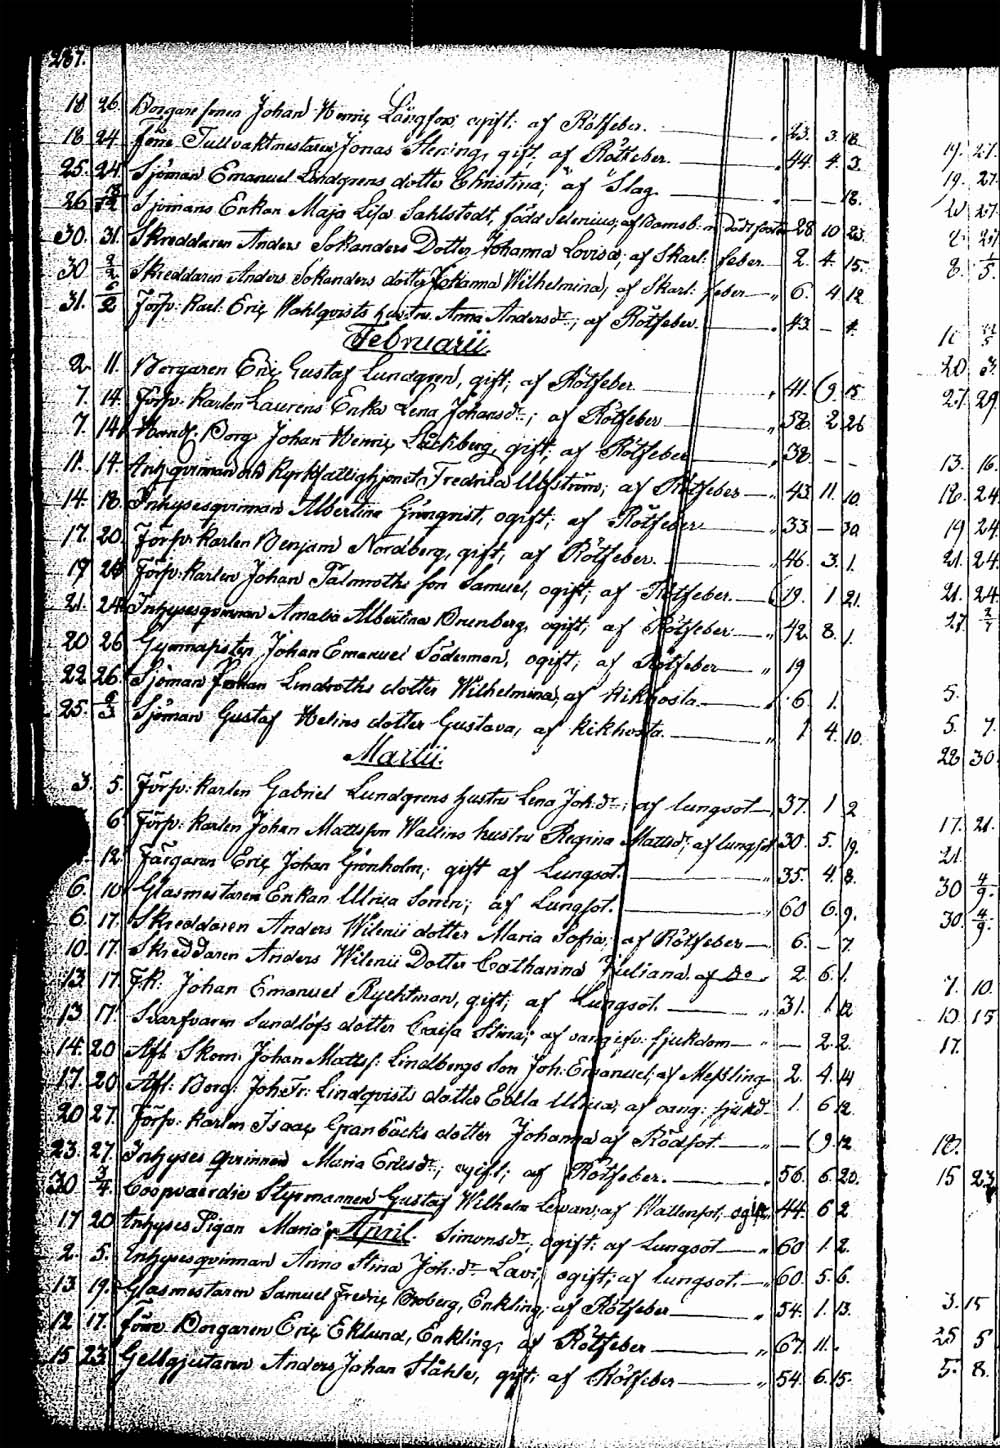 267.
18 26. Borgare sonen Johan Henric Långfors, ogift; af Rötfeber. " 23. 3. 18.
18 24 förre Tullvaktmestaren Jonas Stening, gift, af Rötfeber. " 44 4. 3.
25. 24 Sjöman Emanuel Lindgrens dotter Christina; af Slag " — — 18.
26 Sjömans Enkan Maja Lisa Sahlstedt, född Selenius, af Barnsb: m dödt foster 28 10 23.
30. 31. Skreddaren Anders Sokanders Dotter Johanna Lovisa, af Skarl: feber 2. 4. 15.
30 2/2 Skreddaren Anders Sokanders dotter Johanna Wilhelmina, af Skarl: feber " 6. 4 12.
31. 6/2 Försv: karl: Eric Wahlqvists hustru Anna Andersdr; af Rötfeber. " 43. — 4.
Februarii.
2. 11. Borgaren Eric Gustaf Lundgren, gift; af Rötfeber " 41. 9. 15
7. 14. Försv: karlen Laurens Enka Lena Johansdr; af Rötfeber " 58. 2 26
7. 14. Borg: Johan Henric, gift; af Rötfeber " 38. — —
11. 14. Fredrika; af Rötfeber " 43. 11. 10.
14. 18. Inhysesqvinnan Albertina Grönqvist, ogift; af Rötfeber " 33 — 30.
17. 20. Försv: karlen Benjam Nordberg, gift, af Rötfeber. " 46 3. 1.
19 26 Försv: karlen Johan Palmroths son Samuel, ogift; af Rötfeber. 19. 1 21.
21. 24. Inhysesqvinnan Amalia Albertina Brunberg, ogift; af Rötfeber " 42 8. 1.
20 26 Gymnasisten Johan Emanuel Söderman, ogift; af Rötfeber " 19
22. 26. Sjöman Lindroths dotter Wilhelmina, af Kikhosta. " 6 1.
25. 2/3 Sjöman Gustaf Helins dotter Gustava, af Kikhosta. " 1 4. 10.
Martii.
3. 5. Försv: karlen Gabriel Lundgrens hustru Lena Joh:dr; af lungsot " 37. 1 2
6. Försv: karlen Johan Mattsson Wallins hustru Regina Mattsdr; af lungsot 30. 5. 19.
12. Färgaren Eric Johan Grönholm; gift af Lungsot. " 35. 4. 8.
6. 10. Glasmestaren Enkan Ulrica; af Lungsot. " 60 6. 9.
6. 17. Skreddaren Anders Wilenii dotter Maria Sofia, af Rötfeber " 6. — 7.
10. 17. Skreddaren Anders Wilenii Dotter Catharina Juliana af do " 2 6. 1.
13. 17. FK: Johan Emanuel Rychtman, gift; af Lungsot. " 31. 1. 12
13 17. Svarfvaren Sundlöfs dotter Caisa Stina; af oangifv: sjukdom " — 2. 2.
14. 20 Afl: Skom: Johan Mattss: Lindbergs son Joh: Emanuel; af Messling 2. 4. 14
17. 20 Afl: Borg: Joh: Fr: Lindqvists dotter Edla Ulrica; af oang: sjukd " 1. 6 12.
20 27. Försv: karlen Isaac Granbäcks dotter Johanna af Rödsot. " — 9. 12
23. 27. Inhyses qvinnan Maria Ericsdr; ogift; af Rötfeber. " 56. 6. 20.
30 3/4. Coopvaerdie Styrmannen Gustaf Wilhelm Lewan; af Wattensot, ogift 44. 6 2.
17 20 Inhyses Pigan Maria Simonsdr; ogift: af Lungsot " 60 1. 2.
April.
2. 5. Inhysesqvinnan Anna Stina Joh:dr Lavi, ogift; af lungsot. " 60. 5. 6.
13 19. Glasmestaren Samuel Fredric Broberg, Enkling; af Rötfeber " 54. 1. 13.
12 17. förre Borgaren Eric Eklund, Enkling, af Rötfeber " 67. 11.
15 23. Gelbgjutaren Anders Johan Ståhle, gift; af Rötfeber " 54. 6. 15.
19. 27.
19. 27.
20 27.
8. 1/5.
20. 3.
27. 29
13. 16.
18. 24
19 24
21. 24
21. 24
27 2/7
5.
5. 7.
28 30
17. 21.
21.
30 4/9.
30. 4/9.
7. 10.
10 15
17.
18.
15 23
3. 15
25 5
5. 8.